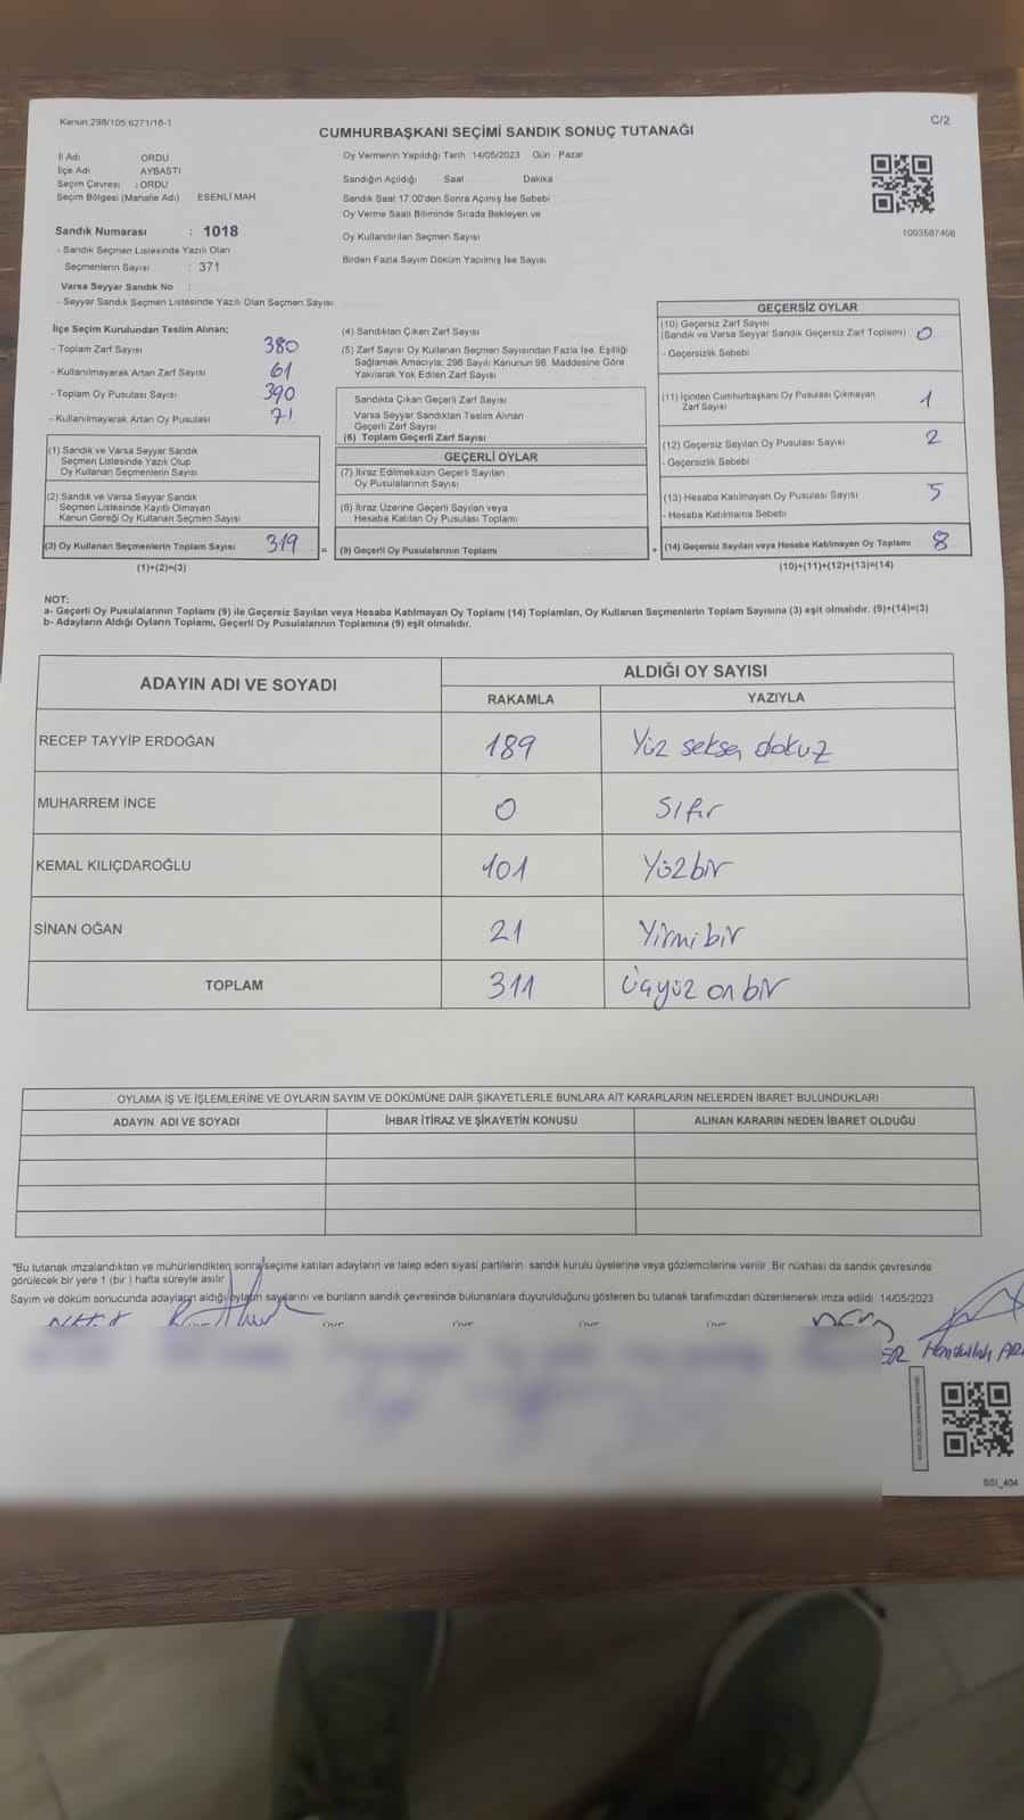 Kanun 298/105 6271/18-1
C/2
CUMHURBAŞKANI SEÇİMİ SANDIK SONUÇ TUTANAĞI
İl Adı ORDU
İlçe Adı AYBASTI
Seçim Çevresi : ORDU
Seçim Bölgesi (Mahalle Adı) ESENLİ MAH
Oy Vermenin Yapıldığı Tarih 14/05/2023 Gün Pazar
Sandığın Açıldığı Saat Dakika
Sandık Saat 17:00'den Sonra Açımış İse Sebebi
Oy Verme Saati Bitiminde Sırada Bekleyen ve
Oy Kullandırılan Seçmen Sayısı
Birden Fazla Sayım Döküm Yapılmış İse Sayısı
1003587408
Sandık Numarası : 1018
- Sandık Seçmen Listesinde Yazılı Olan
Seçmenlerin Sayısı : 371
Varsa Seyyar Sandık No :
- Seyyar Sandık Seçmen Listesinde Yazılı Olan Seçmen Sayısı
İlçe Seçim Kurulundan Teslim Alınan;
- Toplam Zarf Sayısı 380
- Kullanılmayarak Artan Zarf Sayısı 61
- Toplam Oy Pusulası Sayısı 390
- Kullanılmayarak Artan Oy Pusulası 71
(1) Sandık ve Varsa Seyyar Sandık
Seçmen Listesinde Yazılı Olup
Oy Kullanan Seçmenlerin Sayısı
(2) Sandık ve Varsa Seyyar Sandık
Seçmen Listesinde Kayıtlı Olmayan
Kanun Gereği Oy Kullanan Seçmen Sayısı
(3) Oy Kullanan Seçmenlerin Toplam Sayısı 319
(1)+(2)=(3)
(4) Sandıktan Çıkan Zarf Sayısı
(5) Zarf Sayısı Oy Kullanan Seçmen Sayısından Fazla İse, Eşitliği
Sağlamak Amacıyla, 298 Sayılı Kanunun 98. Maddesine Göre
Yakılarak Yok Edilen Zarf Sayısı
Sandıkta Çıkan Geçerli Zarf Sayısı
Varsa Seyyar Sandıktan Teslim Alınan
Geçerli Zarf Sayısı
(6) Toplam Geçerli Zarf Sayısı
GEÇERLİ OYLAR
(7) İtiraz Edilmeksizin Geçerli Sayılan
Oy Pusulalarının Sayısı
(8) İtiraz Üzerine Geçerli Sayılan veya
Hesaba Katılan Oy Pusulası Toplamı
= (9) Geçerli Oy Pusulalarının Toplamı
GEÇERSİZ OYLAR
(10) Geçersiz Zarf Sayısı
(Sandık ve Varsa Seyyar Sandık Geçersiz Zarf Toplamı) 0
- Geçersizlik Sebebi
(11) İçinden Cumhurbaşkanı Oy Pusulası Çıkmayan
Zarf Sayısı 1
(12) Geçersiz Sayılan Oy Pusulası Sayısı 2
- Geçersizlik Sebebi
(13) Hesaba Katılmayan Oy Pusulası Sayısı 5
- Hesaba Katılmama Sebebi
+ (14) Geçersiz Sayılan veya Hesaba Katılmayan Oy Toplamı 8
(10)+(11)+(12)+(13)=(14)
NOT:
a- Geçerli Oy Pusulalarının Toplamı (9) ile Geçersiz Sayılan veya Hesaba Katılmayan Oy Toplamı (14) Toplamları, Oy Kullanan Seçmenlerin Toplam Sayısına (3) eşit olmalıdır. (9)+(14)=(3)
b- Adayların Aldığı Oyların Toplamı, Geçerli Oy Pusulalarının Toplamına (9) eşit olmalıdır.
ADAYIN ADI VE SOYADI
ALDIĞI OY SAYISI
RAKAMLA YAZIYLA
RECEP TAYYİP ERDOĞAN 189 Yüz seksen dokuz
MUHARREM İNCE 0 Sıfır
KEMAL KILIÇDAROĞLU 101 Yüzbir
SİNAN OĞAN 21 Yirmibir
TOPLAM 311 Üçyüz on bir
OYLAMA İŞ VE İŞLEMLERİNE VE OYLARIN SAYIM VE DÖKÜMÜNE DAİR ŞİKAYETLERLE BUNLARA AİT KARARLARIN NELERDEN İBARET BULUNDUKLARI
ADAYIN ADI VE SOYADI İHBAR İTİRAZ VE ŞİKAYETİN KONUSU ALINAN KARARIN NEDEN İBARET OLDUĞU
"Bu tutanak imzalandıktan ve mühürlendikten sonra seçime katılan adayların ve talep eden siyasi partilerin sandık kurulu üyelerine veya gözlemcilerine verilir. Bir nüshası da sandık çevresinde
görülecek bir yere 1 (bir) hafta süreyle asılır
Sayım ve döküm sonucunda adayların aldığı oyların sayılarını ve bunların sandık çevresinde bulunanlara duyurulduğunu gösteren bu tutanak tarafımızdan düzenlenerek imza edildi 14/05/2023